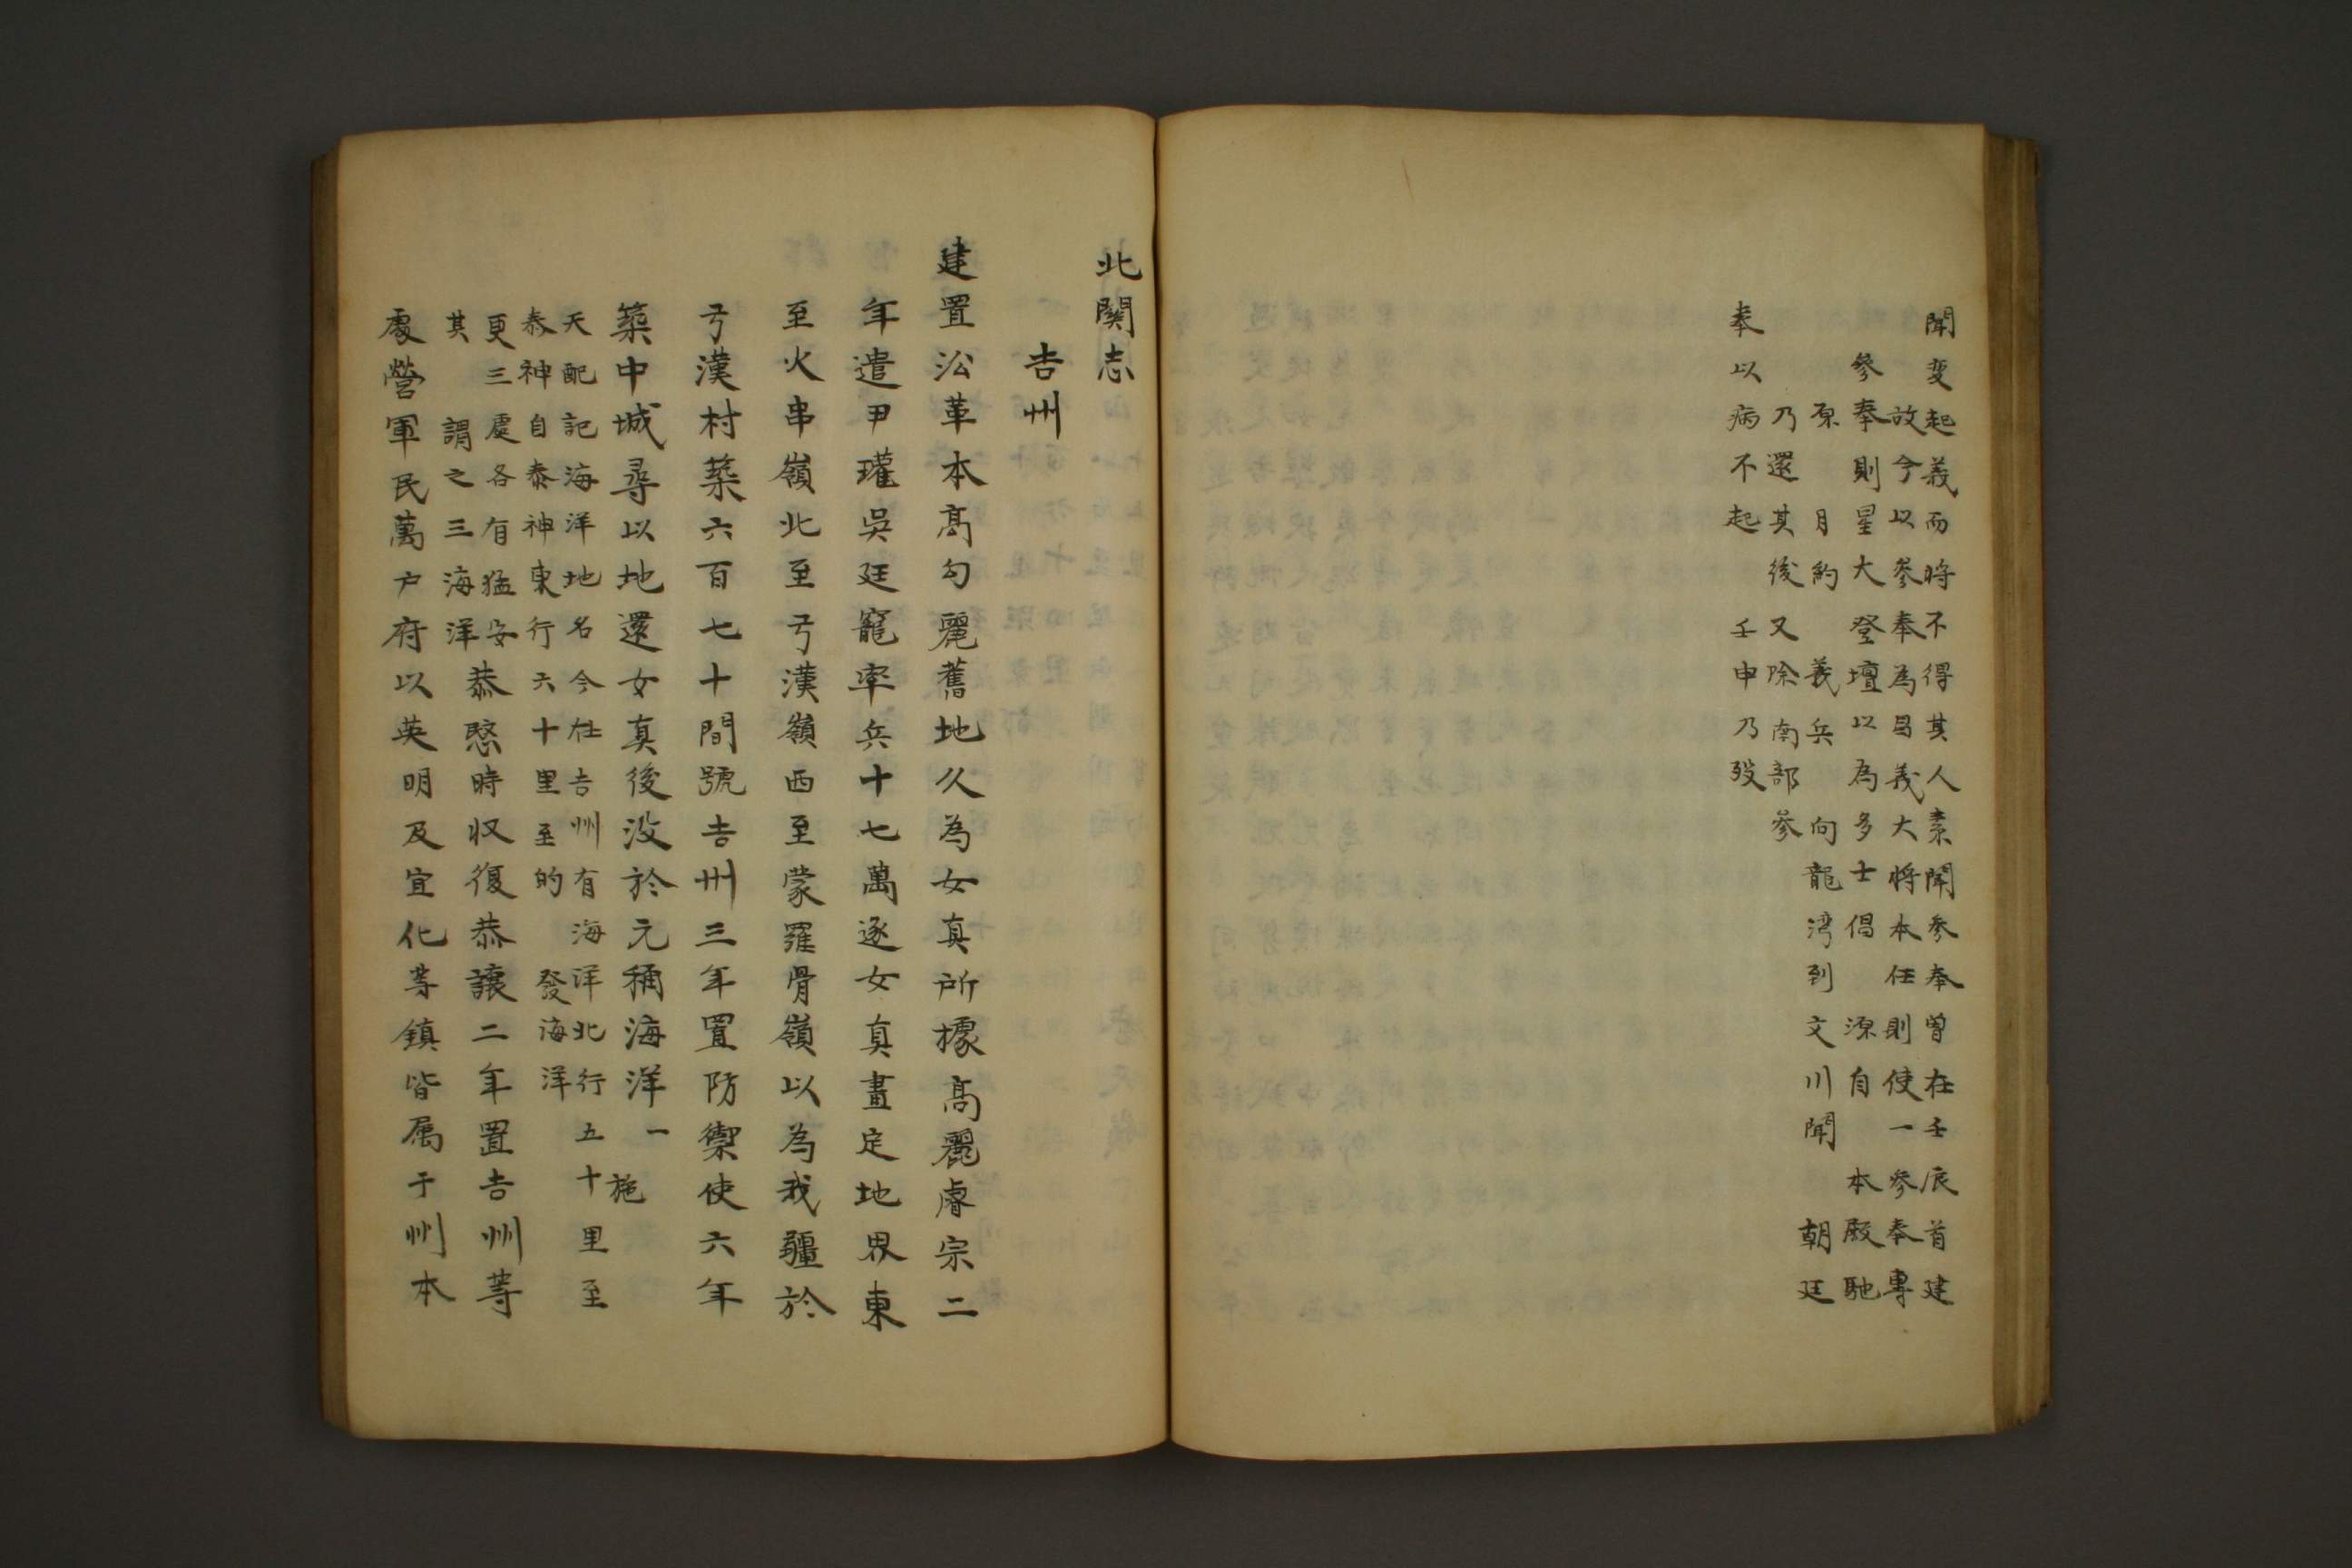 聞变起義而將不得其人素聞参奉曾在壬辰首建
故今以参奉為昌義大將本任則使一参奉專
參奉則星大登壇以為多士倡 源自 本殿馳
原 月約 義兵 向龍湾到文川聞 朝廷
乃還其後又除南部參
奉以病不起 壬申乃歿
北關志
吉州
建置㳂革本高勾麗舊地久為女真所據高麗睿宗二
年遣尹瓘吳廷寵率兵十七萬逐女真畫定地界東
至火串嶺北至弓漢嶺西至蒙羅骨嶺以為我疆於
弓漢村築六百七十間號吉州三年置防禦使六年
築中城尋以地還女真後没於元稱海洋一施
天配記海洋地名今在吉州有海洋北行五十里至
泰神自泰神東行六十里至的 發海洋
更三處各有猛安
其 謂之三海洋
恭愍時収復恭讓二年置吉州等
處營軍民萬户府以英明及宜化等鎮皆属于州本